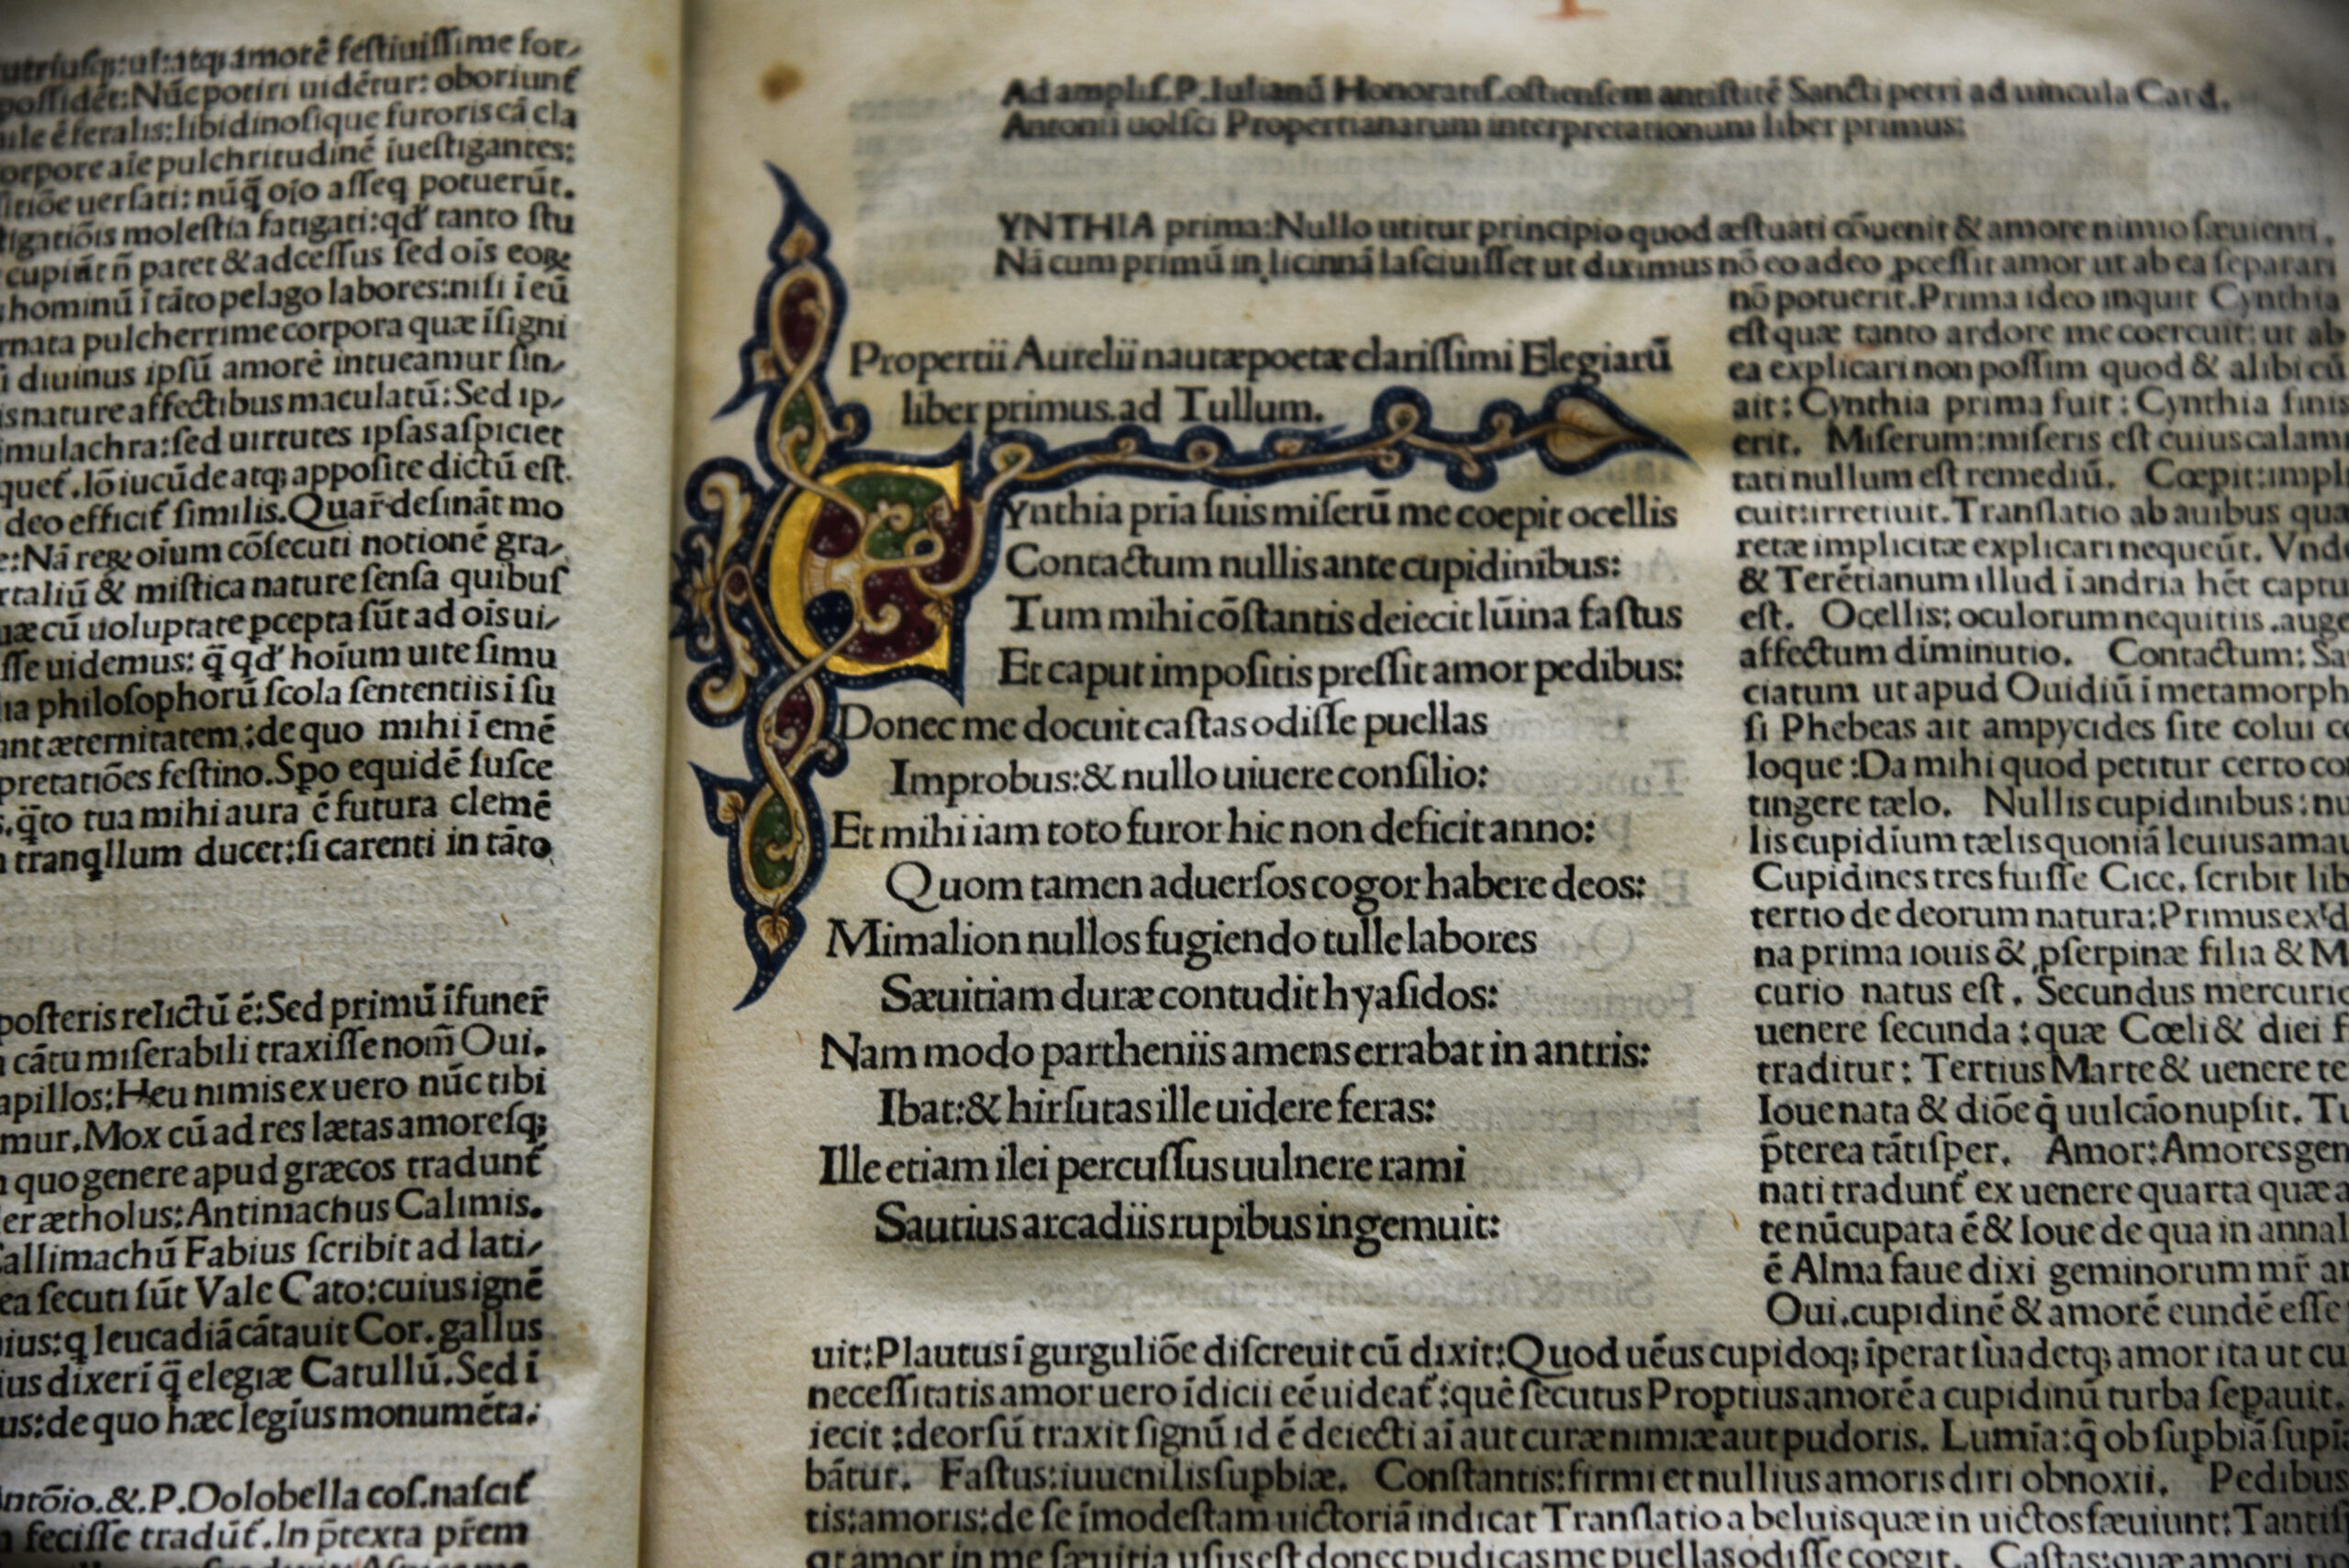 utriusq;:ul:atq; amorē festiuissime for/
possidēt:Nūc potiri uidētur: oboriunt̄
ē feralis:libidinosique furoris cā cla
corpore aīe pulchritudinē īuestigantes:
itiōe uersati: nūq̄ oīo asseq potuerūt.
tigatiōis molestia fatigati:qd' tanto stu
cupiūt n̄ patet & adcessus sed oīs eoꝝ
hominū ī tāto pelago labores:nisi ī eū
rnata pulcherrime corpora quæ īsigni
diuinus ipsū amorē intueamur sin/
is nature affectibus maculatū: Sed ip/
imulachra:sed uirtutes ipsas aspiciet
quet̄. Iō iucūde atq; apposite dictū est.
deo efficit̄ similis. Quar̄ desināt mo
e: Nā reꝝ oīum cōsecuti notionē gra/
rtaliū & mistica nature sensa quibus
uæ cū uoluptate pcepta sūt ad oīs ui/
sse uidemus: q̄ qd' hoīum uite simu
lia philosophorū scola sententiis ī su
ant æternitatem: de quo mihi ī emē
pretatiōes festino. Spo equidē susce
s. q̄to tua mihi aura ē futura clemē
tranqllum ducet: si carenti in tāto
posteris relictū ē: Sed primū īfuner̄
cātu miserabili traxisse nom̄ Oui.
apillos: Heu nimis ex uero nūc tibi
mur. Mox cū ad res lætas amoresq;
quo genere apud græcos tradunt̄
er ætholus: Antimachus Calimis.
Callimachū Fabius scribit ad lati/
ea secuti sūt Vale Cato: cuius ignē
nius: q leucadiā cātauit Cor. gallus
ius dixerī q̄ elegiæ Catullū. Sed ī
us: de quo hæc legīus monumēta:
Antōio. &. P. Dolobella cos. nascit̄
fecisse tradūt̄. In p̄texta pr̄em
Ad ampliss. P. Iulianū Honoratiss. ostiensem antistitē Sancti petri ad uincula Card.
Antonii uolsci Propertianarum interpretationum liber primus:
YNTHIA prima: Nullo utitur principio quod æstuati cōuenit & amore nimio sæuienti.
Nā cum primū in licinnā lasciuisset ut diximus nō eo adeo pcessit amor ut ab ea separari
nō potuerit. Prima ideo inquit Cynthia
est quæ tanto ardore me coercuit: ut ab
ea explicari non possim quod & alibi cū
ait: Cynthia prima fuit: Cynthia finis
erit. Miserum: miseris est cuius calami
tati nullum est remediū. Cœpit: impli
cuit: irretiuit. Translatio ab auibus quæ
retæ implicitæ explicari nequeūt. Vnde
& Terētianum illud ī andria hēt captus
est. Ocellis: oculorum nequitiis. auget
affectum diminutio. Contactum: Sau
ciatum ut apud Ouidiū ī metamorph
si Phebeas ait ampycides site colui
loque: Da mihi quod petitur certo con
tingere tælo. Nullis cupidinibus: nul
lis cupidīum tælis quoniā leuius amau
Cupidines tres fuisse Cice. scribit lib
tertio de deorum natura: Primus ex
na prima iouis & pserpinæ filia & M
curio natus est. Secundus mercurio
uenere secunda: quæ Cœli & diei
traditur: Tertius Marte & uenere te
Ioue nata & diōe q̄ uulcāo nupsit. Tu
p̄terea tātisper. Amor: Amores gen
nati tradunt̄ ex uenere quarta quæ a
te nūcupata ē & Ioue de qua in annal
ē Alma faue dixi geminorum mr̄ a
Oui. cupidinē & amorē eundē esse
Propertii Aurelii nautæ poetæ clarissimi Elegiarū
liber primus. ad Tullum.
CYnthia pria suis miserū me coepit ocellis
Contactum nullis ante cupidinibus:
Tum mihi cōstantis deiecit lūina fastus
Et caput impositis pressit amor pedibus:
Donec me docuit castas odisse puellas
Improbus: & nullo uiuere consilio:
Et mihi iam toto furor hic non deficit anno:
Quom tamen aduersos cogor habere deos:
Mimalion nullos fugiendo tulle labores
Sæuitiam duræ contudit hyasidos:
Nam modo partheniis amens errabat in antris:
Ibat: & hirsutas ille uidere feras:
Ille etiam ilei percussus uulnere rami
Sautius arcadiis rupibus ingemuit:
uit: Plautus ī gurguliōe discreuit cū dixit: Quod uēus cupidoq; īperat suadetq; amor ita ut cu
necessitatis amor uero īdicii eē uideat̄: quē secutus Proptius amorē a cupidinū turba sepauit.
iecit: deorsū traxit signū id ē deiecti aī aut curæ nimiæ aut pudoris. Lumīa: q̄ ob supbiā
bātur. Fastus: iuuenilis supbiæ. Constantis: firmi et nullius amoris diri obnoxii. Pedibus
tis: amoris: de se īmodestam uictoriā indicat Translatio a beluis quæ in uictos sæuiunt:
amor in me sæuitia usus est donec pudicas me puellas odisse coegit. Castas: